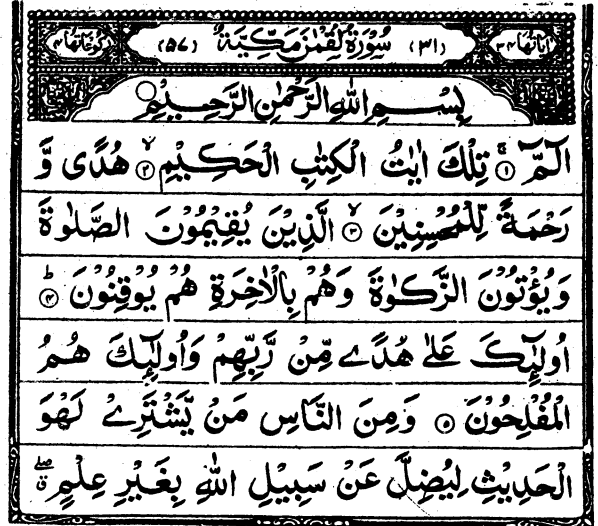 اٰيَاتُهَا ٣٤ (٣١) سُوْرَةُ لُقْمٰنَ مَكِّيَّةٌ (٥٧) رُكُوْعَاتُهَا ٤
بِسْمِ اللّٰهِ الرَّحْمٰنِ الرَّحِيْمِ
الٓمّٓ ۚ﴿١﴾ تِلْكَ اٰيٰتُ الْكِتٰبِ الْحَكِيْمِ ۙ﴿٢﴾ هُدًى وَّ
رَحْمَةً لِّلْمُحْسِنِيْنَ ۙ﴿٣﴾ الَّذِيْنَ يُقِيْمُوْنَ الصَّلٰوةَ
وَيُؤْتُوْنَ الزَّكٰوةَ وَهُمْ بِالْاٰخِرَةِ هُمْ يُوْقِنُوْنَ ؕ﴿٤﴾
اُولٰٓئِكَ عَلٰى هُدًى مِّنْ رَّبِّهِمْ وَاُولٰٓئِكَ هُمُ
الْمُفْلِحُوْنَ ﴿٥﴾ وَمِنَ النَّاسِ مَنْ يَّشْتَرِيْ لَهْوَ
الْحَدِيْثِ لِيُضِلَّ عَنْ سَبِيْلِ اللّٰهِ بِغَيْرِ عِلْمٍ ۖۗ